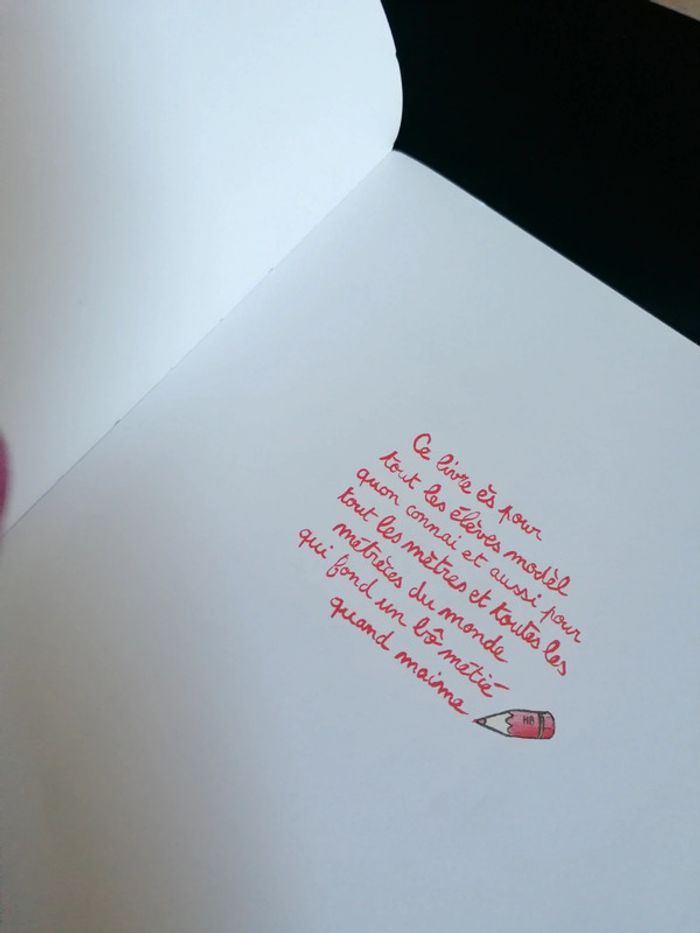 Ce livre ès pour
tout les élèves modèl
quon connai et aussi pour
tout les mètres et toutes les
métrèces du monde
qui fond un bô métié
quand maime
HB